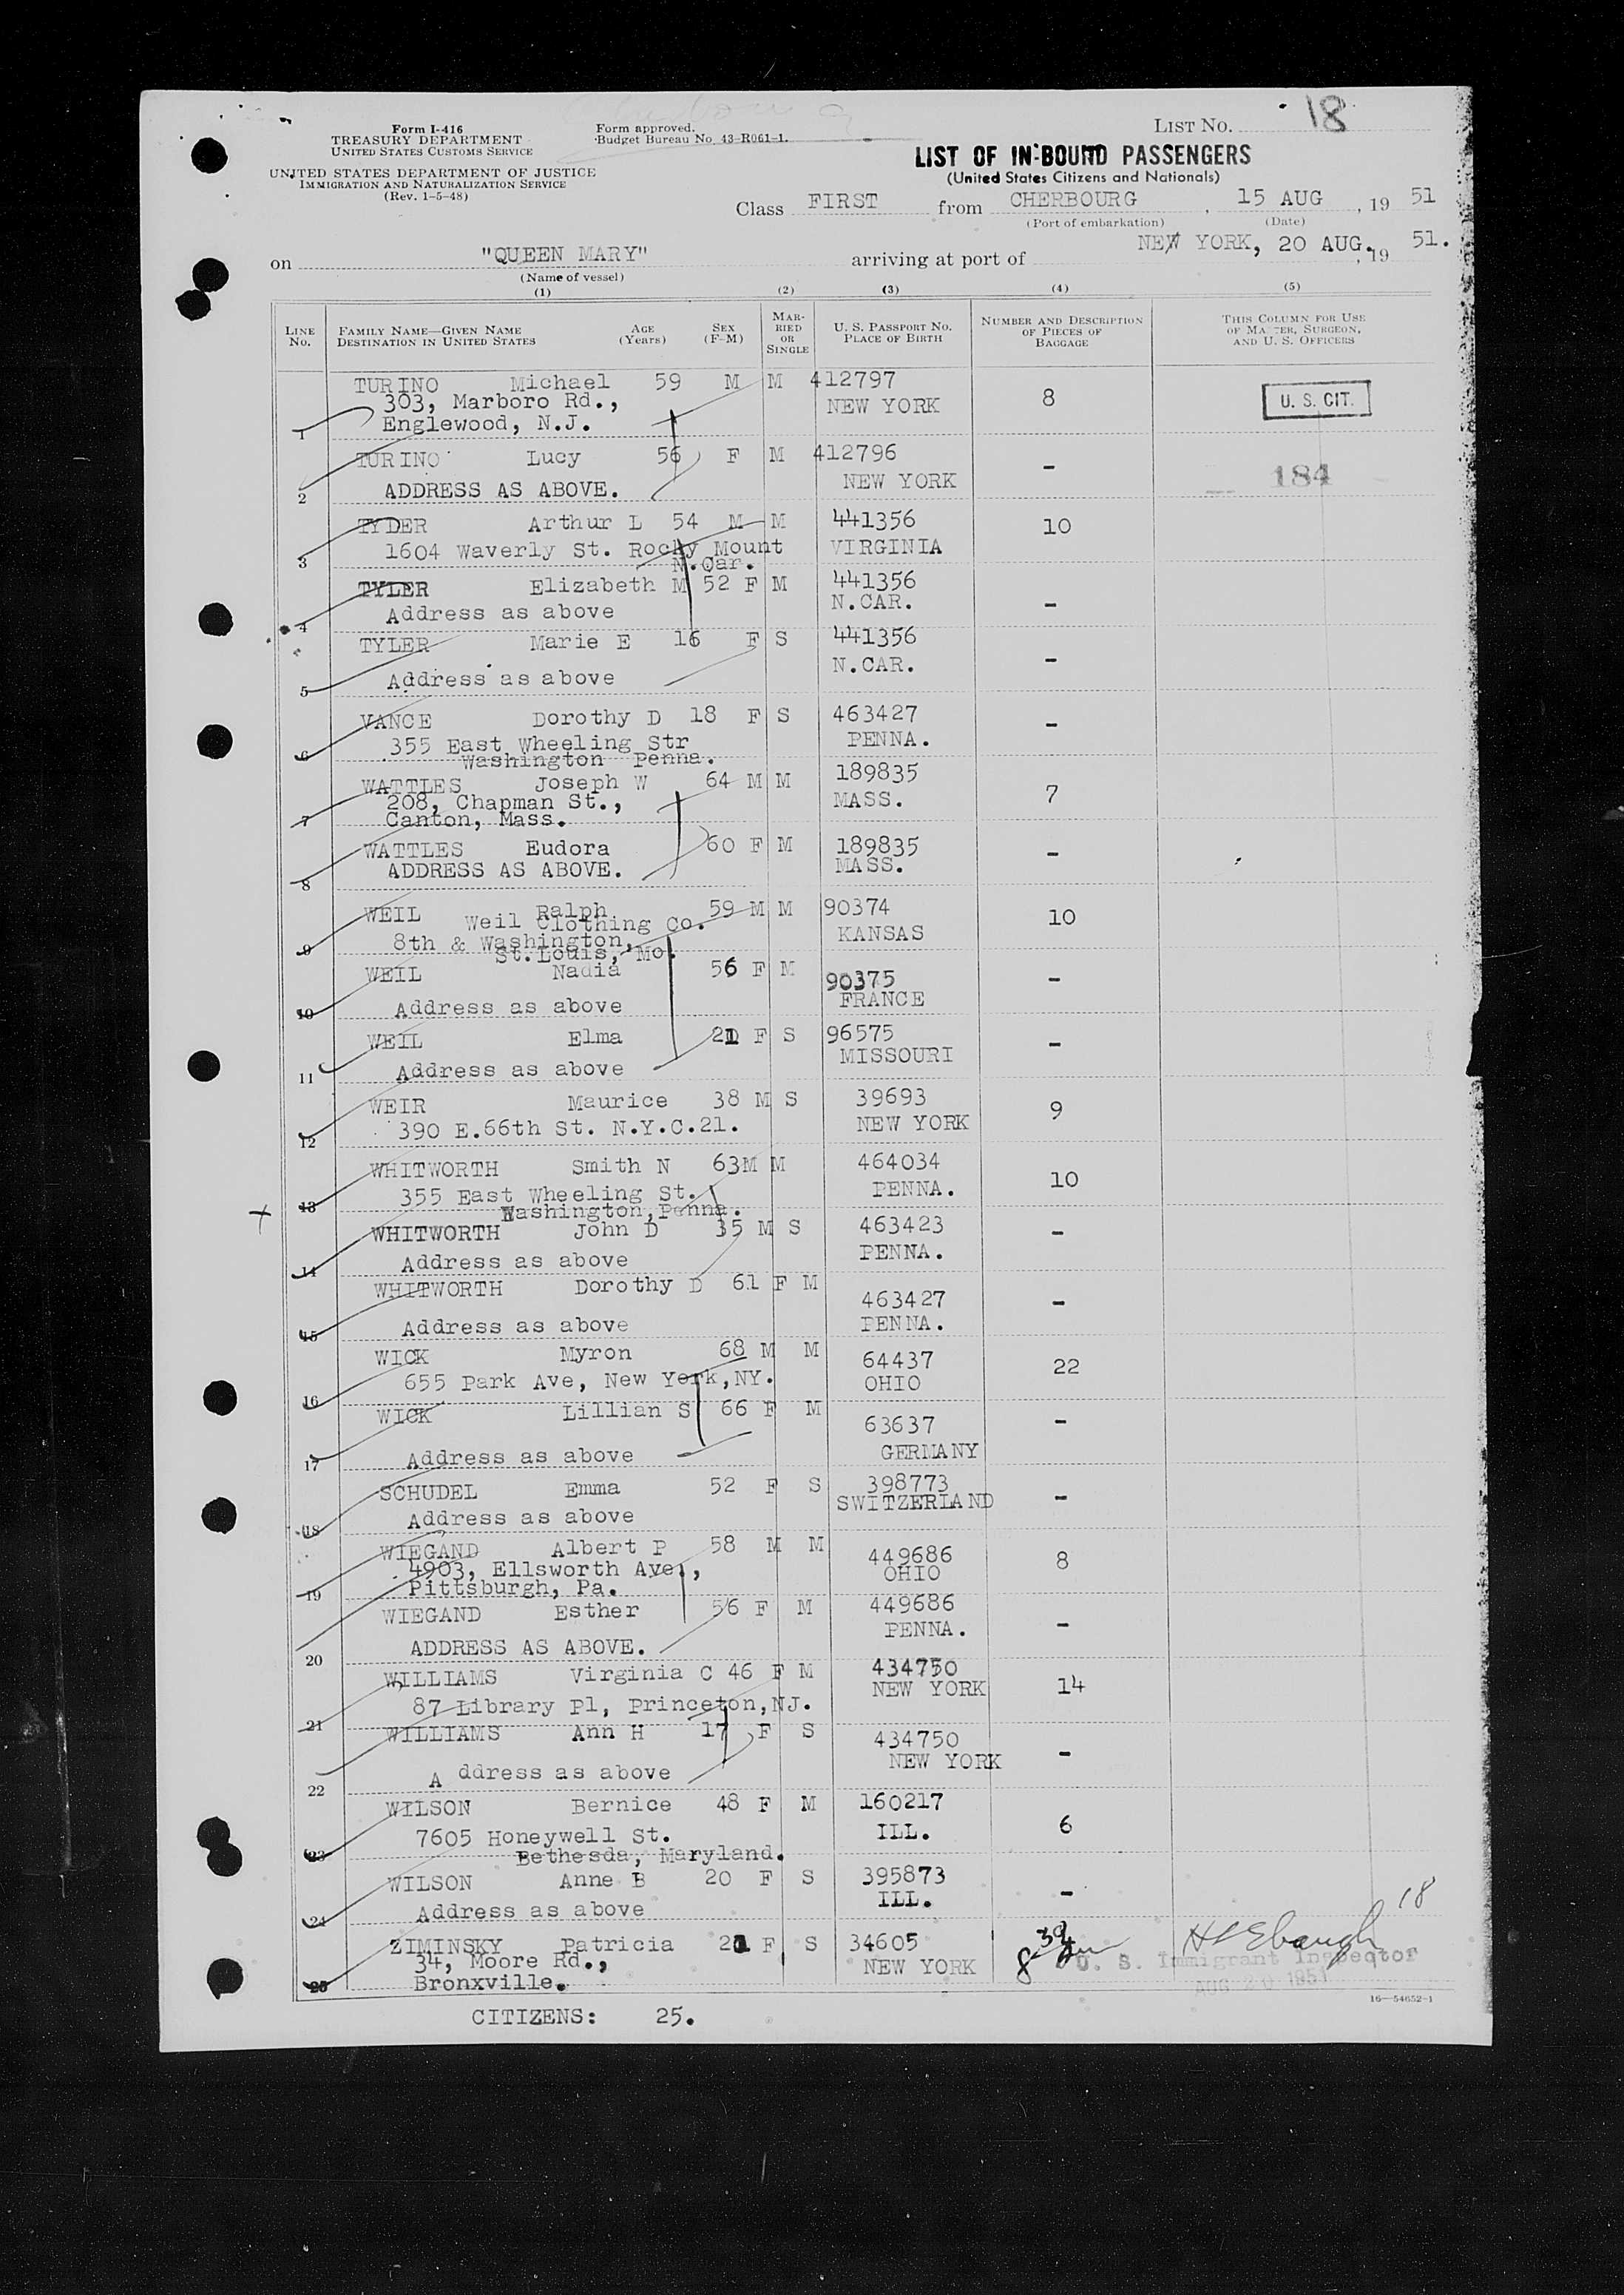 Form I-416
TREASURY DEPARTMENT
UNITED STATES CUSTOMS SERVICE
UNITED STATES DEPARTMENT OF JUSTICE
IMMIGRATION AND NATURALIZATION SERVICE
(Rev. 1-5-48)
Form approved.
Budget Bureau No. 43-R061-1.
LIST NO. 18
LIST OF IN-BOUND PASSENGERS
(United States Citizens and Nationals)
Class FIRST from CHERBOURG, 15 AUG, 19 51
(Port of embarkation) (Date)
on "QUEEN MARY" arriving at port of NEW YORK, 20 AUG., 19 51.
(Name of vessel)
(1) (2) (3) (4) (5)
LINE No. FAMILY NAME—GIVEN NAME DESTINATION IN UNITED STATES AGE (Years) SEX (F-M) MARRIED OR SINGLE U. S. PASSPORT NO. PLACE OF BIRTH NUMBER AND DESCRIPTION OF PIECES OF BAGGAGE THIS COLUMN FOR USE OF MASTER, SURGEON, AND U. S. OFFICERS
TURINO Michael 59 M M 412797
303, Marboro Rd., NEW YORK 8 U. S. CIT.
1 Englewood, N.J.
TURINO Lucy 56 F M 412796 -
184
2 ADDRESS AS ABOVE. NEW YORK
TYDER Arthur L 54 M M 441356 10
3 1604 Waverly St. Rocky Mount VIRGINIA
N.Car.
TYLER Elizabeth M 52 F M 441356
4 Address as above N.CAR. -
TYLER Marie E 16 F S 441356
5 Address as above N.CAR. -
VANCE Dorothy D 18 F S 463427 -
6 355 East Wheeling Str PENNA.
Washington Penna.
WATTLES Joseph W 64 M M 189835
208, Chapman St., MASS. 7
7 Canton, Mass.
WATTLES Eudora 60 F M 189835 -
8 ADDRESS AS ABOVE. MASS.
WEIL Ralph 59 M M 90374 10
Weil Clothing Co.
9 8th & Washington, KANSAS
St.Louis, Mo.
WEIL Nadia 56 F M 90375 -
10 Address as above FRANCE
WEIL Elma 21 F S 96575 -
11 Address as above MISSOURI
WEIR Maurice 38 M S 39693 9
12 390 E.66th St. N.Y.C.21. NEW YORK
WHITWORTH Smith N 63 M M 464034
13 355 East Wheeling St. PENNA. 10
Washington, Penna.
WHITWORTH John D 35 M S 463423 -
14 Address as above PENNA.
WHITWORTH Dorothy D 61 F M 463427 -
15 Address as above PENNA.
WICK Myron 68 M M 64437 22
16 655 Park Ave, New York,NY. OHIO
WICK Lillian S 66 F M 63637 -
17 Address as above GERMANY
SCHUDEL Emma 52 F S 398773 -
18 Address as above SWITZERLAND
WIEGAND Albert P 58 M M 449686 8
4903, Ellsworth Ave., OHIO
19 Pittsburgh, Pa.
WIEGAND Esther 56 F M 449686 -
20 ADDRESS AS ABOVE. PENNA.
WILLIAMS Virginia C 46 F M 434750 14
21 87 Library Pl, Princeton,NJ. NEW YORK
WILLIAMS Ann H 17 F S 434750 -
22 Address as above NEW YORK
WILSON Bernice 48 F M 160217 6
23 7605 Honeywell St. ILL.
Bethesda, Maryland.
WILSON Anne B 20 F S 395873 -
18
24 Address as above ILL.
ZIMINSKY Patricia 21 F S 34605
34, Moore Rd., NEW YORK U. S. Immigrant Inspector
25 Bronxville. AUG 20 1951
16—54652-1
CITIZENS: 25.